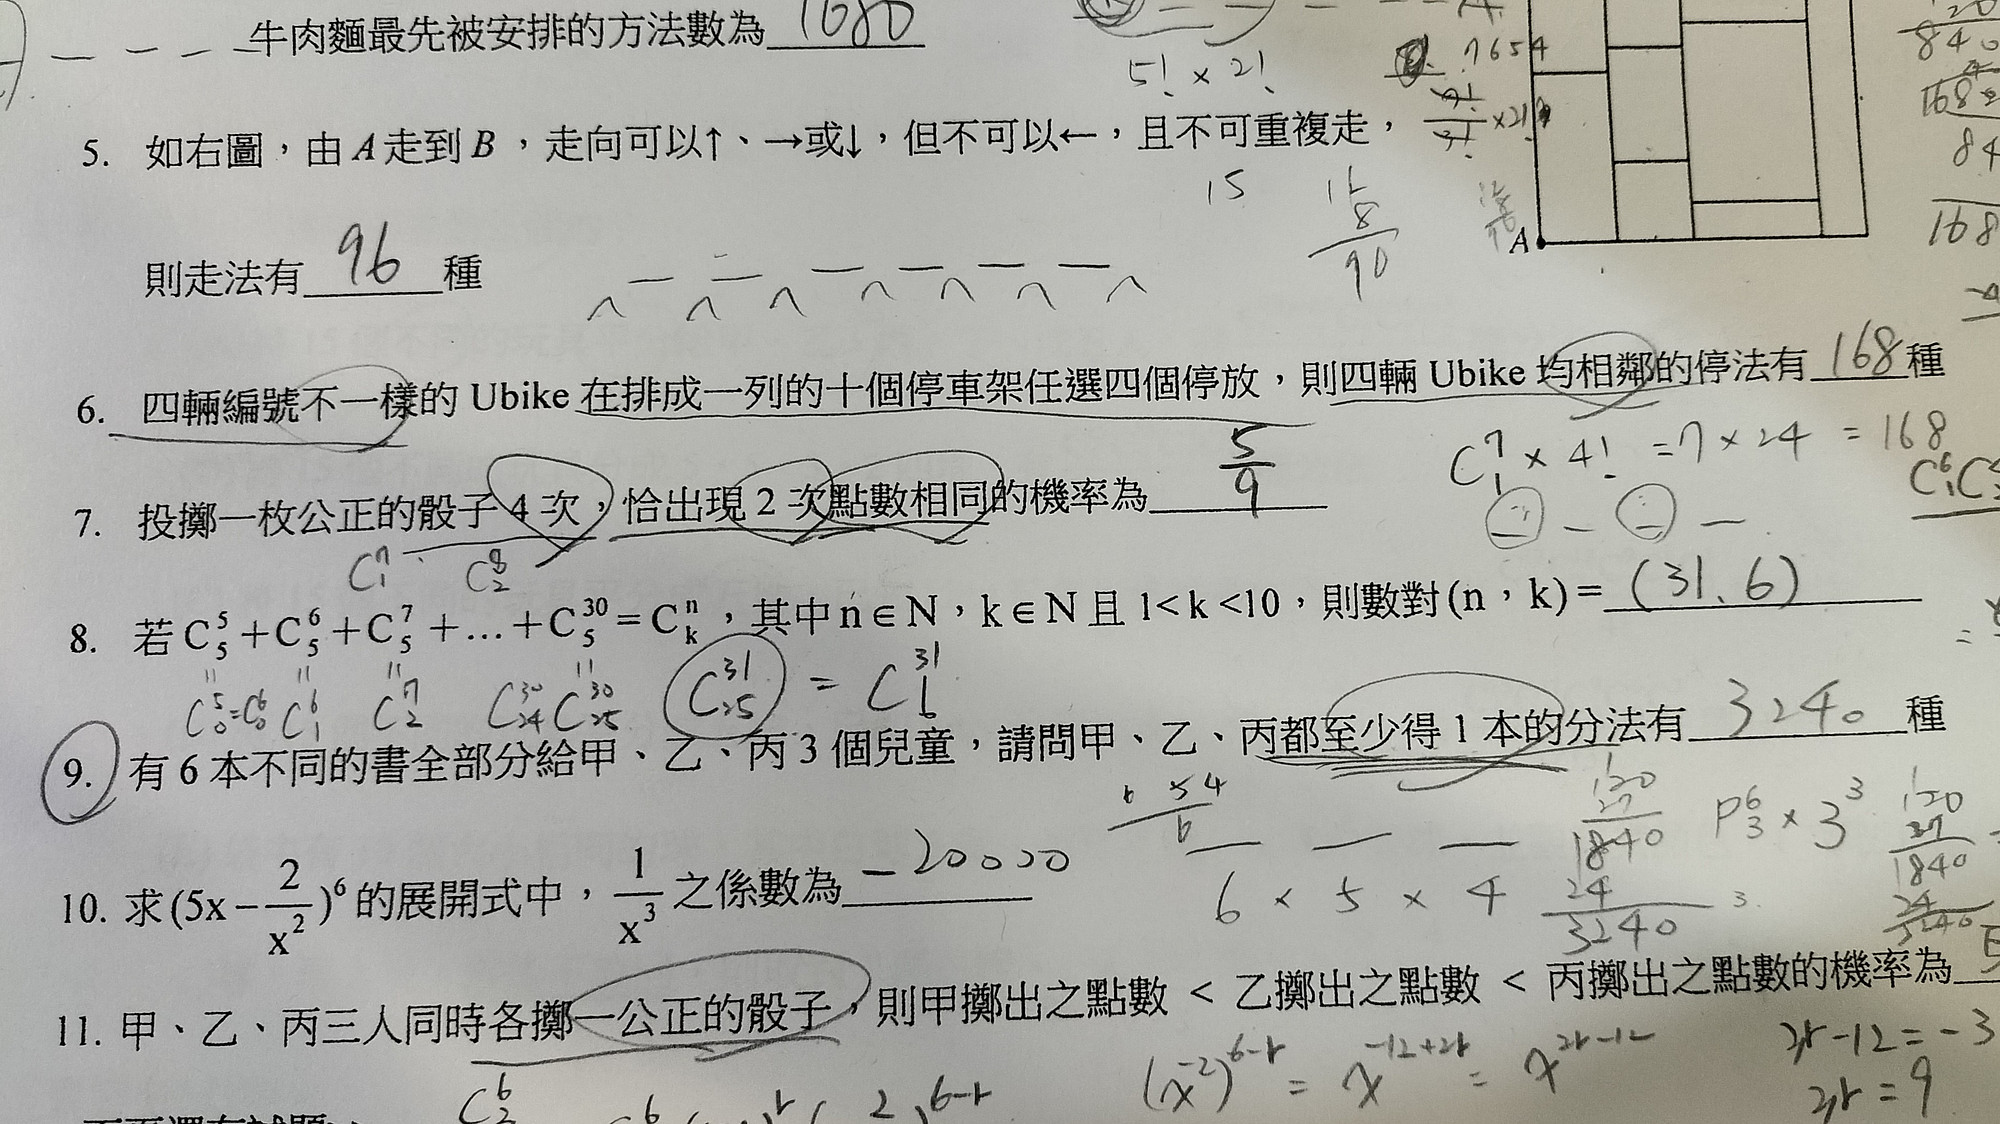 牛肉麵最先被安排的方法數為 1680
5! × 2!
7654
5. 如右圖，由 A 走到 B，走向可以↑、→或↓，但不可以←，且不可重複走，
15
90
A
168
則走法有 96 種
6. 四輛編號不一樣的 Ubike 在排成一列的十個停車架任選四個停放，則四輛 Ubike 均相鄰的停法有 168 種
C⁷₁ × 4! = 7 × 24 = 168
7. 投擲一枚公正的骰子 4 次，恰出現 2 次點數相同的機率為 5/9
C⁷₁ C⁸₂
8. 若 C⁵₅ + C⁶₅ + C⁷₅ + … + C³⁰₅ = Cⁿₖ，其中 n ∈ N，k ∈ N 且 1< k <10，則數對 (n，k) = (31, 6)
C⁵₀ = C⁶₀ C⁶₁ C⁷₂ C³⁰₂₄ C³⁰₂₅ C³¹₂₅ = C³¹₆
9. 有 6 本不同的書全部分給甲、乙、丙 3 個兒童，請問甲、乙、丙都至少得 1 本的分法有 3240 種
120
27
1840
24
3240
P⁶₃ × 3³
120
27
1840
24
3240
6 × 5 × 4
10. 求 (5x − 2/x²)⁶ 的展開式中，1/x³ 之係數為 −20000
11. 甲、乙、丙三人同時各擲一公正的骰子，則甲擲出之點數 < 乙擲出之點數 < 丙擲出之點數的機率為
(x⁻²)⁶⁻ʳ = x⁻¹²⁺²ʳ = x²ʳ⁻¹²
3r−12 = −3
3r = 9